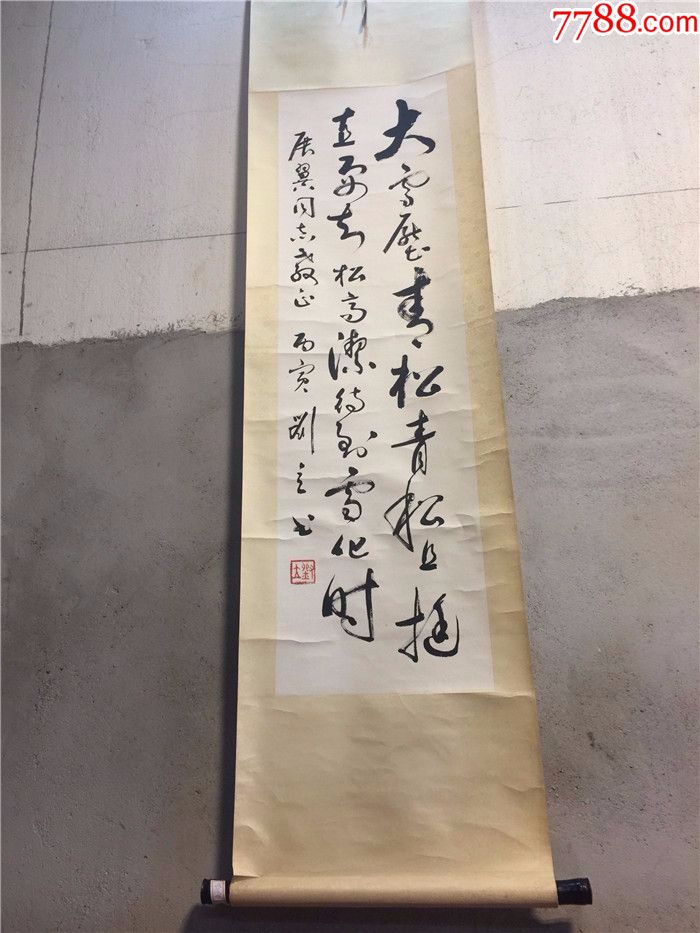 7788.com
大雪压青松青松且挺
直要知松高潔待到雪化时
展翼同志教正 丙寅 劉立书